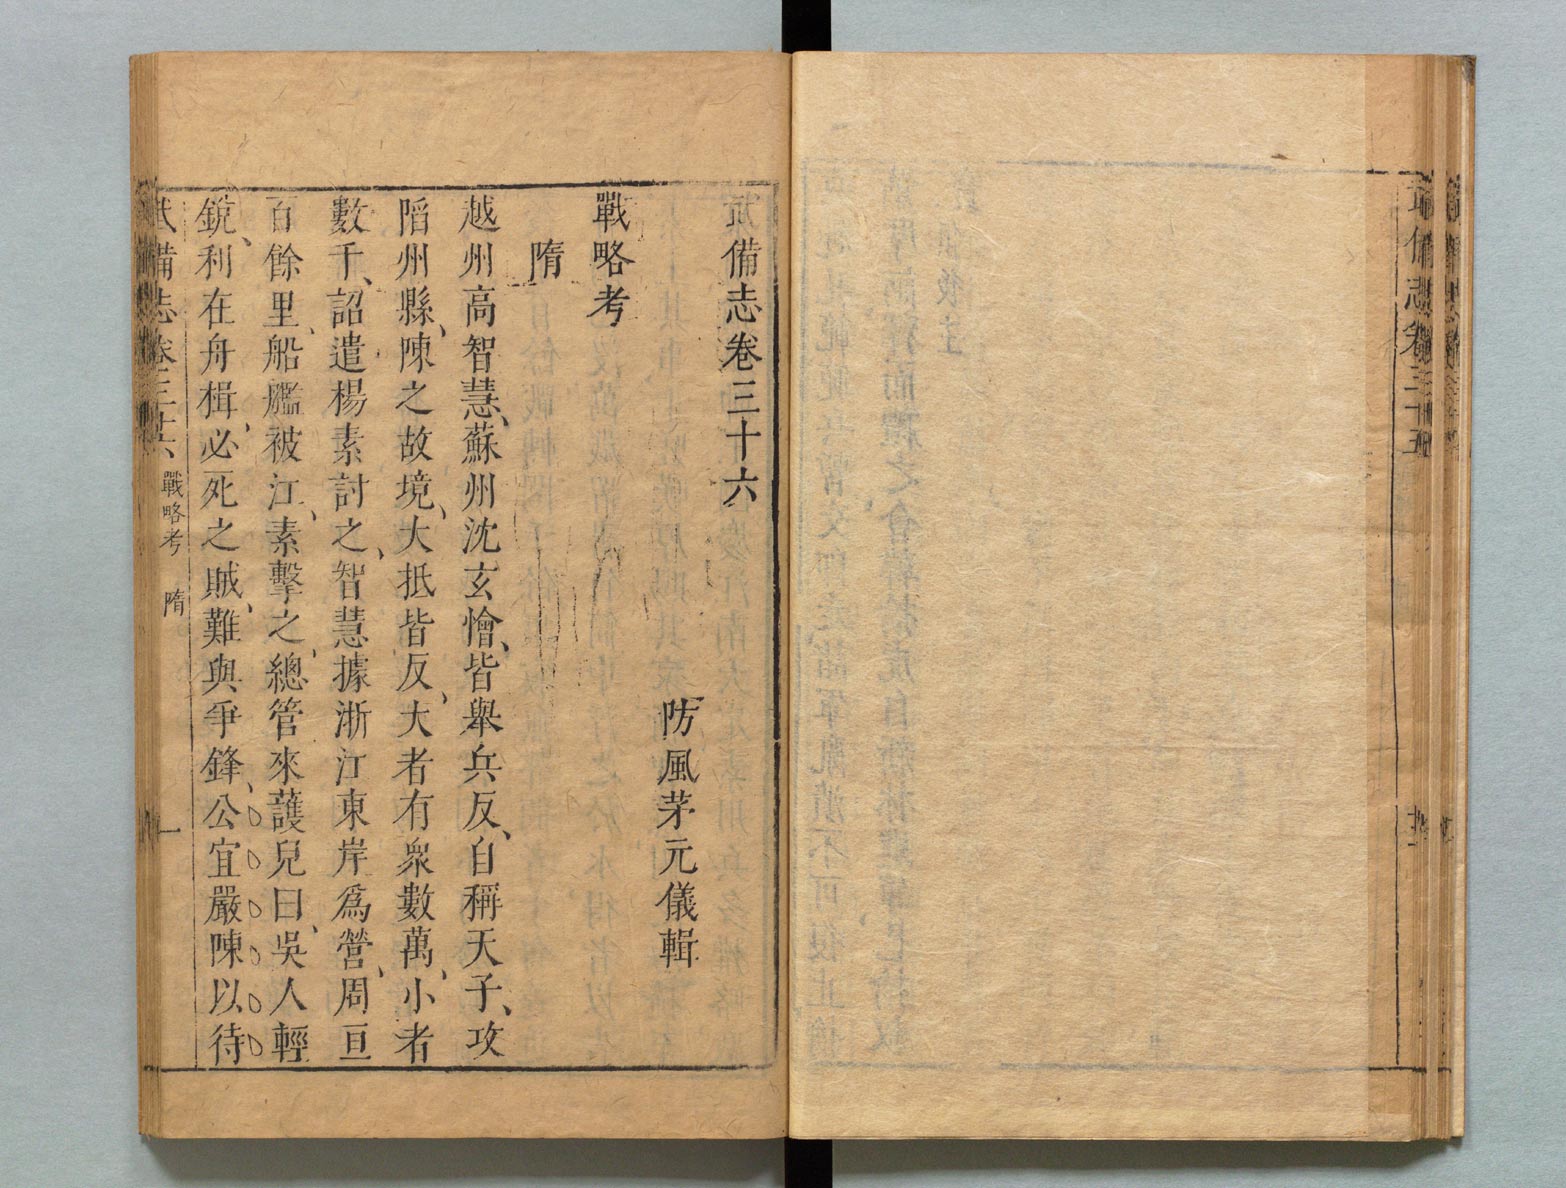 武備志卷三十五
武備志卷三十六
防風茅元儀輯
戰略考
隋
越州高智慧、蘇州沈玄懀、皆舉兵反、自稱天子、攻
陷州縣、陳之故境、大抵皆反、大者有衆數萬、小者
數千、詔遣楊素討之、智慧據浙江東岸爲營、周亘
百餘里、船艦被江、素擊之、總管來護兒曰、吳人輕
銳、利在舟楫、必死之賊、難與爭鋒、公宜嚴陳以待
武備志卷三十六、戰略考 隋 一